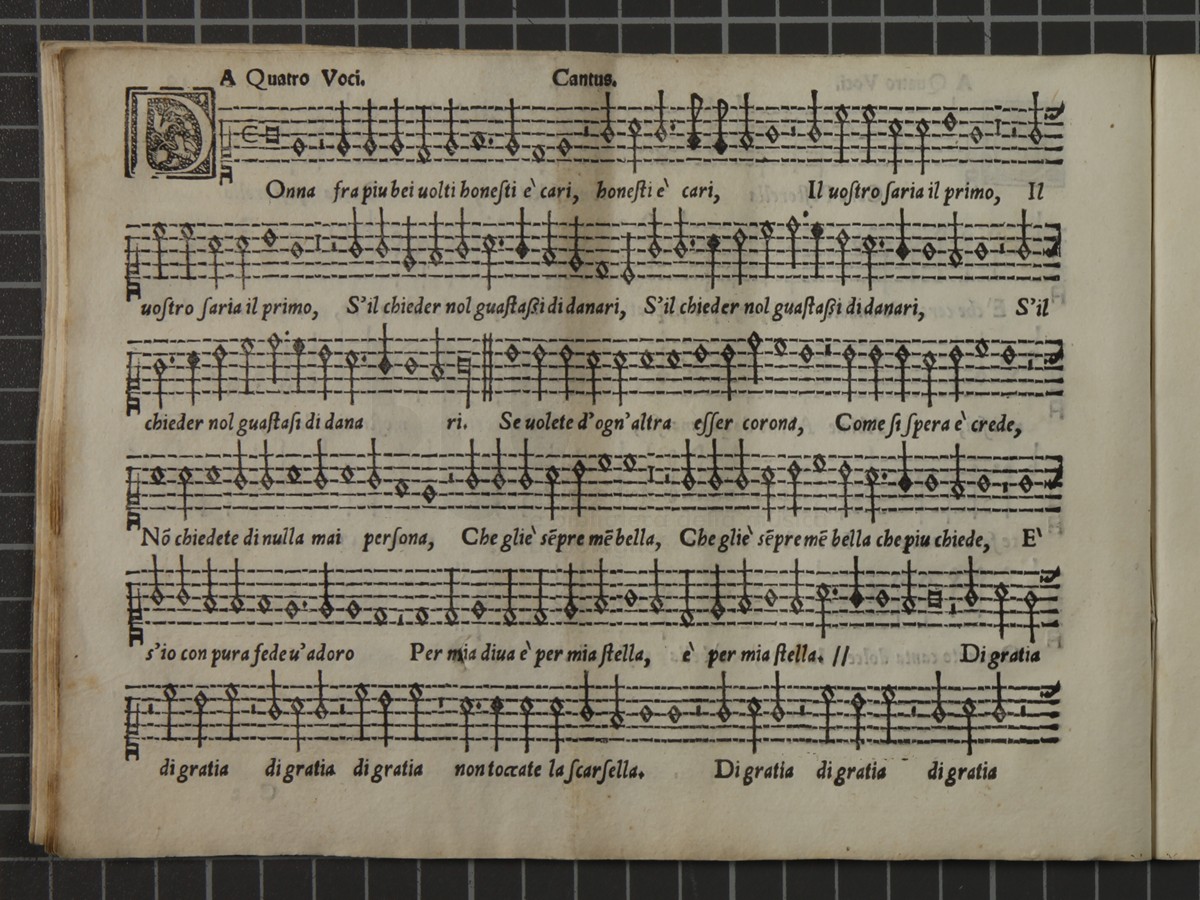 A Quatro Voci. Cantus.
DOnna fra piu bei uolti honeſti e` cari, honeſti e` cari, Il uoſtro ſaria il primo, Il
uoſtro ſaria il primo, S'il chieder nol guaſtaſſi di danari, S'il chieder nol guaſtaſſi di danari, S'il
chieder nol guaſtaſi di dana ri. Se uolete d'ogn'altra eſſer corona, Come ſi ſpera e` crede,
Nō chiedete di nulla mai perſona, Che glie` sēpre mē bella, Che glie` sēpre mē bella che piu chiede, E`
s'io con pura fede u'adoro Per mia diua e` per mia ſtella, e` per mia ſtella. // Di gratia
di gratia di gratia di gratia non toccate la ſcarſella. Di gratia di gratia di gratia